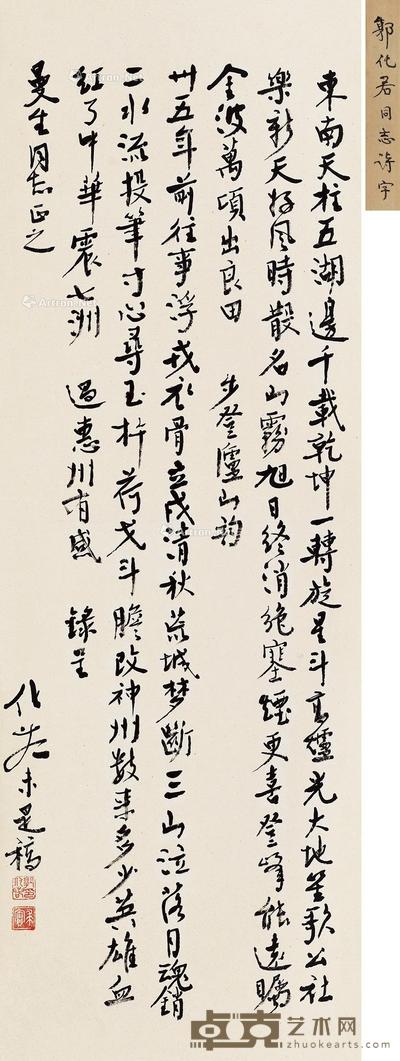 郭化若同志诗字
東南天柱五湖邊千載乾坤一轉旋星斗高爐光大地笙歌公社
樂新天好風時散名山霧旭日終消絶塞煙更喜登峰能遠矚
金波萬頃出良田 步登廬山韵
卅五年前往事浮戎衣骨立戍清秋荒城梦斷三山泣落月魂銷
二水流投筆寸心尋玉杵荷戈斗膽改神州数来多少英雄血
紅了中華震七洲 過惠州有感 錄呈
曼生同志正之
化若未是稿
卓克艺术网
zhuokearts.com